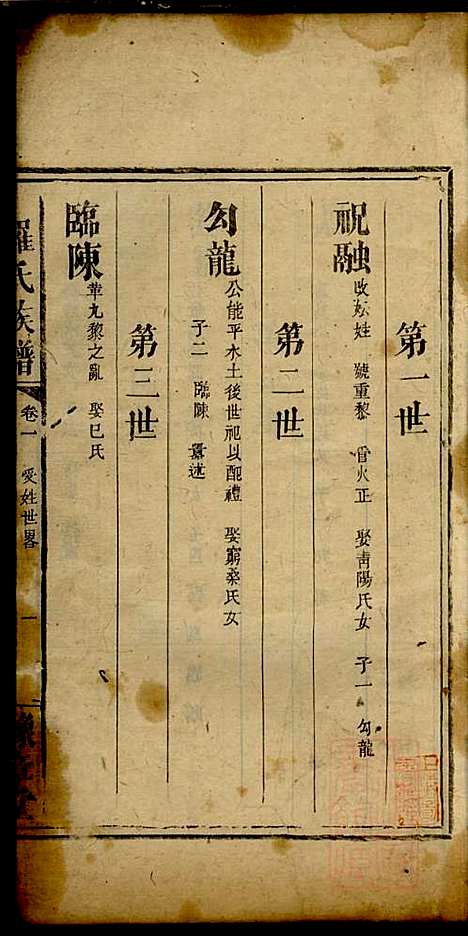 第一世
祝融 改妘姓 號重黎 官火正 娶青陽氏女 子一 勾龍
第二世
勾龍 公能平水土後世祀以配禮 娶窮桑氏女
子二 臨陳 囂述
第三世
臨陳 華九黎之亂 娶巳氏
羅氏族譜 卷一 受姓世畧 一 堂